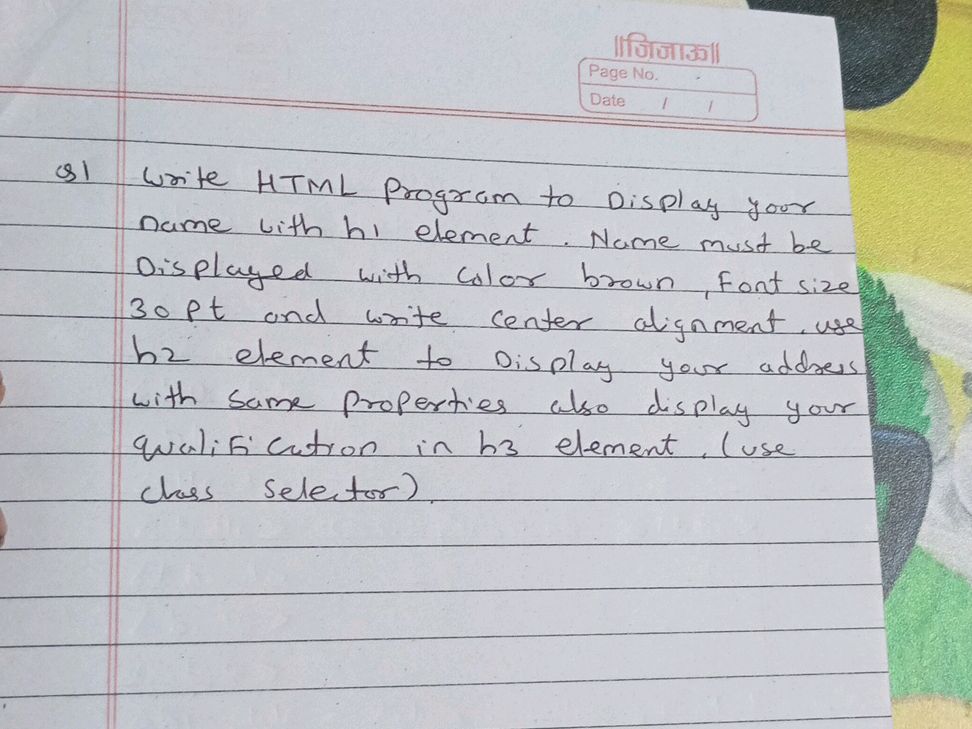 ॥जिजाऊ॥
Page No.
Date / /
Q1 Write HTML Program to Display your
name with h1 element. Name must be
Displayed with color brown, Font size
30 pt and write center alignment. use
h2 element to Display your address
with same properties also display your
qualification in h3 element. (use
class selector).